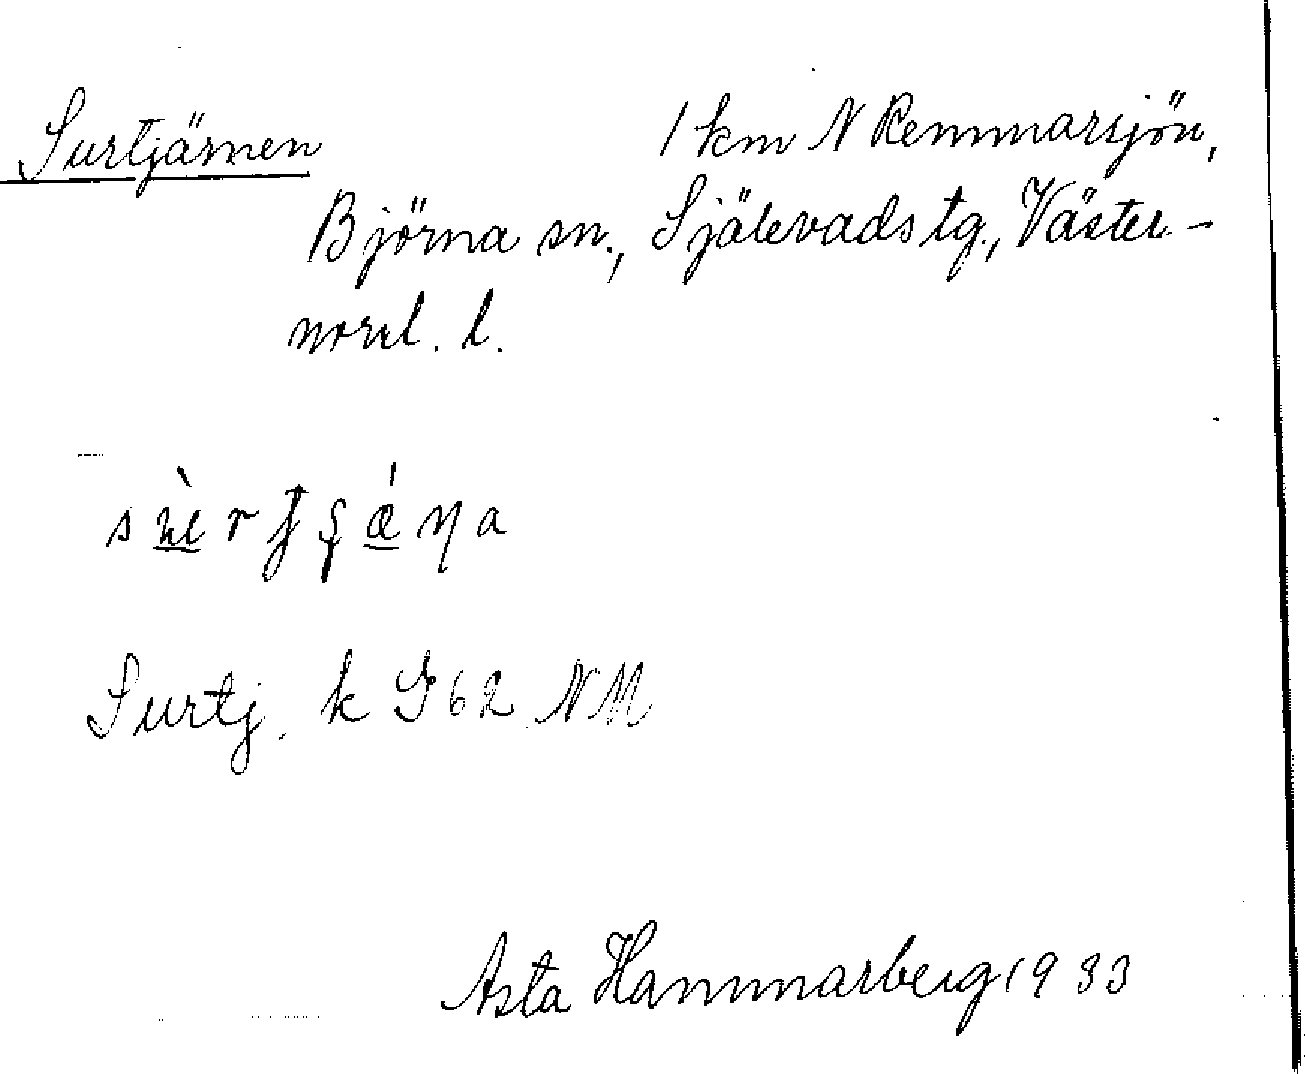 Surtjärnen
1 km N Remmarsjön,
Björna sn., Själevads tg., Väster-
norrl. l.
Surtj. k G62 NM
Asta Hammarberg 1933